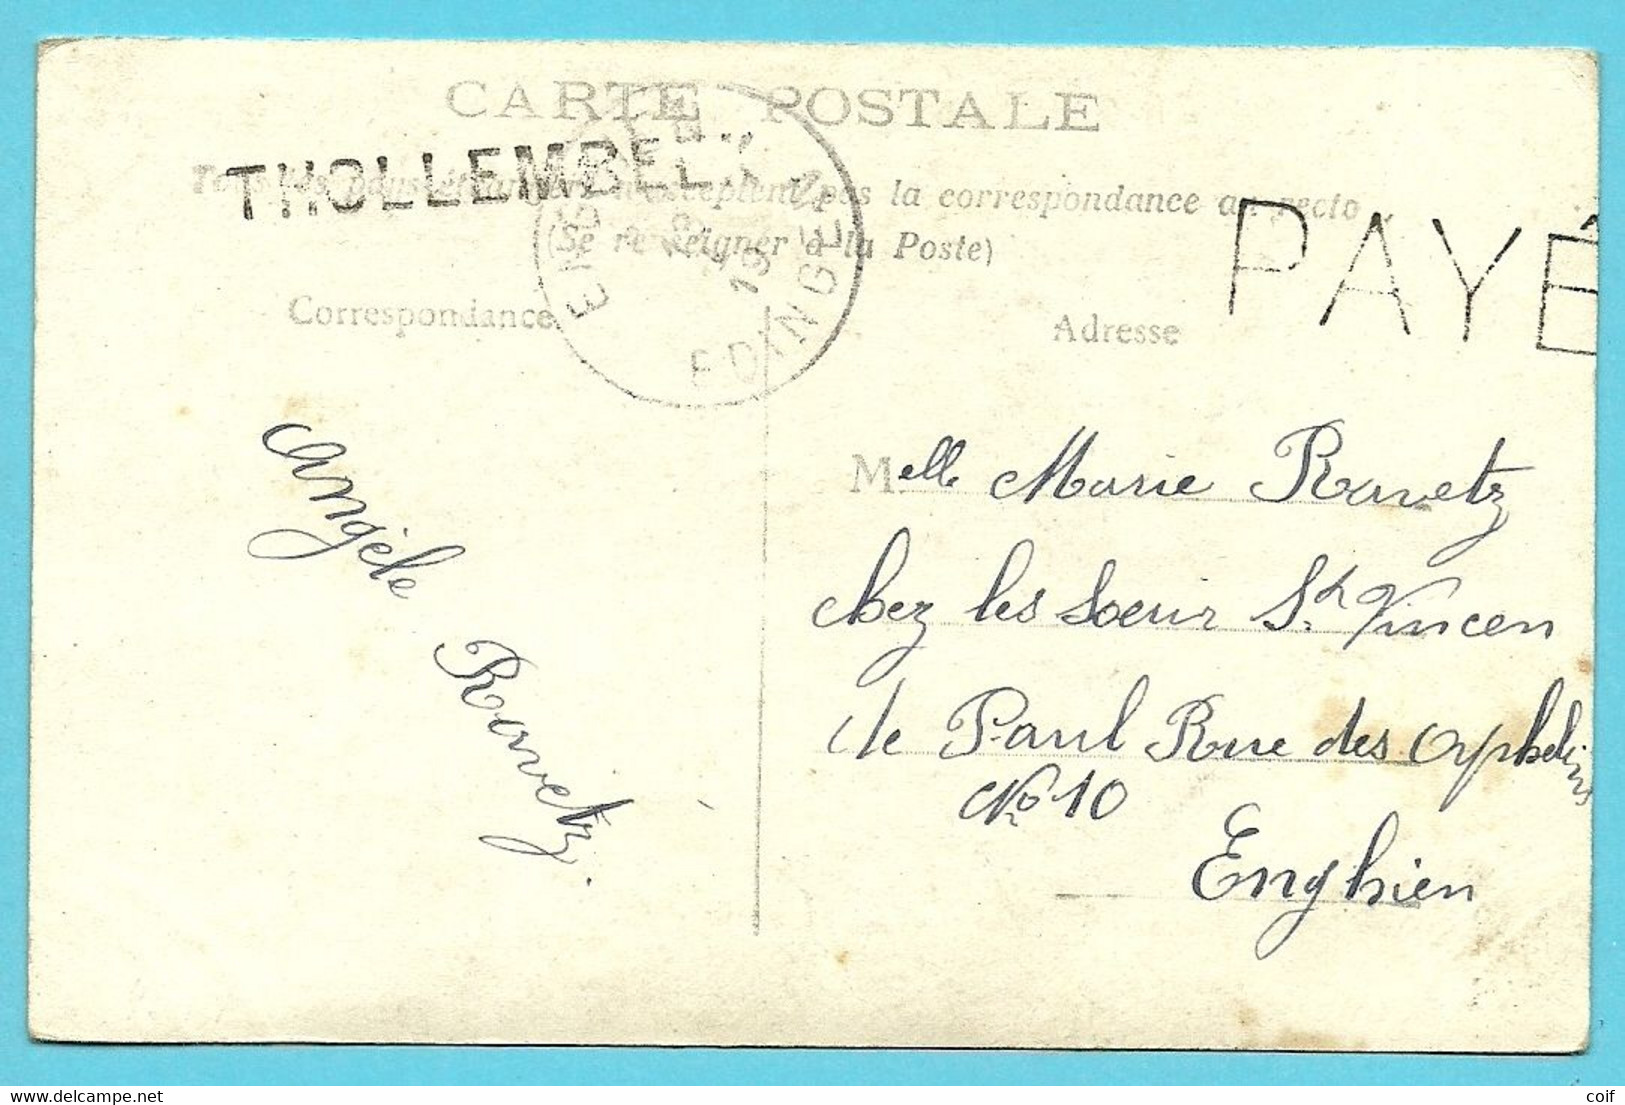 CARTE POSTALE
THOLLEMBEEK
Tous les pays étrangers n'acceptent pas la correspondance au recto
(Se renseigner à la Poste)
ENGHIEN
EDINGEN
19
PAYÉ
Correspondance
Adresse
Angèle Ravetz.
Melle Marie Ravetz
chez les Soeur St Vincen
de Paul Rue des Orphelins
No 10
Enghien
delcampe.net
coif